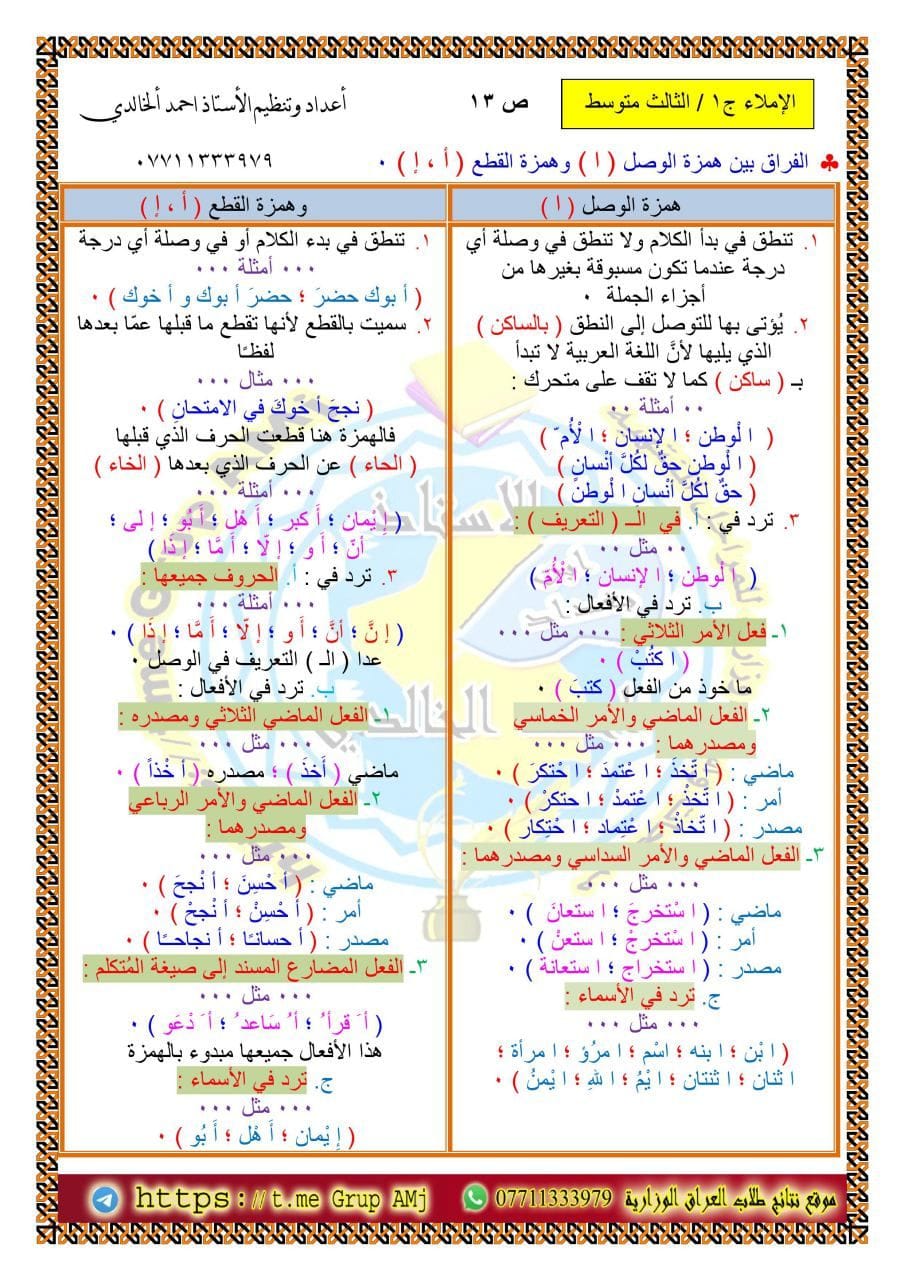 الإملاء ج١ / الثالث متوسط
ص ١٣
أعداد وتنظيم الأستاذ احمد الخالدي
♣ الفراق بين همزة الوصل ( ا ) وهمزة القطع ( أ ، إ ) ٠
٠٧٧١١٣٣٣٩٧٩
همزة الوصل ( ا )
١. تنطق في بدأ الكلام ولا تنطق في وصلة أي
درجة عندما تكون مسبوقة بغيرها من
أجزاء الجملة ٠
٢. يُؤتى بها للتوصل إلى النطق ( بالساكن )
الذي يليها لأنَّ اللغة العربية لا تبدأ
بـ ( ساكن ) كما لا تقف على متحرك :
٠٠ أمثلة ٠٠
( ا لْوطن ؛ ا لإنسان ؛ ا لْأُم ّ )
( ا لْوطن حقٌ لكُلَّ أنْسانٍ )
( حقٌ لكُلَّ أنْسانِ ا لْوطنْ )
٣. ترد في : أ. في الــ ( التعريف ) :
٠٠ مثل ٠٠
( ا لْوطن ؛ ا لإنسان ؛ ا لْأُمّ )
ب. ترد في الأفعال :
١ـ فعل الأمر الثلاثي : ٠٠٠ مثل ٠٠٠
( ا كتُبْ ) ٠
ما خوذ من الفعل ( كتبَ ) ٠
٢ـ الفعل الماضي والأمر الخماسي
ومصدرهما : ٠٠٠ مثل ٠٠٠
ماضي : ( ا تّخذَ ؛ ا عْتمدَ ؛ ا حْتكرَ ) ٠
أمر : ( ا تّخذْ ؛ ا عْتمدْ ؛ ا حتكرْ ) ٠
مصدر : ( ا تّخاذْ ؛ ا عْتِماد ؛ ا حْتِكار ) ٠
٣ـ الفعل الماضي والأمر السداسي ومصدرهما :
٠٠٠ مثل ٠٠٠
ماضي : ( ا سْتخرجَ ؛ ا ستعانَ ) ٠
أمر : ( ا سْتخرجْ ؛ ا ستعنْ ) ٠
مصدر : ( ا ستخراج ؛ ا ستعانة ) ٠
ج. ترد في الأسماء :
٠٠٠ مثل ٠٠٠
( ا بْن ؛ ا بنه ؛ اسْم ؛ ا مرُؤ ؛ ا مرأة ؛
ا ثنان ؛ ا ثنتان ؛ ا يْمُ ؛ ا للهِ ؛ ا يْمنُ ) ٠
وهمزة القطع ( أ ، إ )
١. تنطق في بدء الكلام أو في وصلة أي درجة
٠٠٠ أمثلة ٠٠٠
( أ بوك حضرَ ؛ حضرَ أ بوك و أ خوك ) ٠
٢. سميت بالقطع لأنها تقطع ما قبلها عمّا بعدها
لفظـًا
٠٠٠ مثال ٠٠٠
( نجحَ أ خوكَ في الامتحانِ ) ٠
فالهمزة هنا قطعت الحرف الذي قبلها
( الحاء ) عن الحرف الذي بعدها ( الخاء )
٠٠٠ أمثلة ٠٠٠
( إيْمان ؛ أ كبر ؛ أ هْل ؛ أ بُو ؛ إ لى ؛
أنّ ؛ أ و ؛ إ لّا ؛ أ مَّا ؛ إ ذَا )
٣. ترد في : أ. الحروف جميعها :
٠٠٠ أمثلة ٠٠٠
( إ نَّ ؛ أنَّ ؛ أ و ؛ إ لّا ؛ أ مَّا ؛ إ ذَا ) ٠
عدا ( الـ ) التعريف في الوصل ٠
ب. ترد في الأفعال :
١ـ الفعل الماضي الثلاثي ومصدره :
٠٠٠ مثل ٠٠٠
ماضي ( أَخذَ ) ؛ مصدره ( أ خْذاً ) ٠
٢ـ الفعل الماضي والأمر الرباعي
ومصدرهما :
٠٠٠ مثل ٠٠٠
ماضي : ( أ حْسِنَ ؛ أ نْجحَ ) ٠
أمر : ( أ حْسِنْ ؛ أ نْجحْ ) ٠
مصدر : ( أ حسانـًا ؛ أ نجاحـًا ) ٠
٣ـ الفعل المضارع المسند إلى صيغة المُتكلم :
٠٠٠ مثل ٠٠٠
( أ َ قرأ ُ ؛ أ ُ سَاعد ُ ؛ أ َ دْعَو ) ٠
هذا الأفعال جميعها مبدوء بالهمزة
ج. ترد في الأسماء :
٠٠٠ مثل ٠٠٠
( إ يْمان ؛ أ هْل ؛ أ بُو ) ٠
موقع نتائج طلاب العراق الوزارية 07711333979
https://t.me Grup AMj